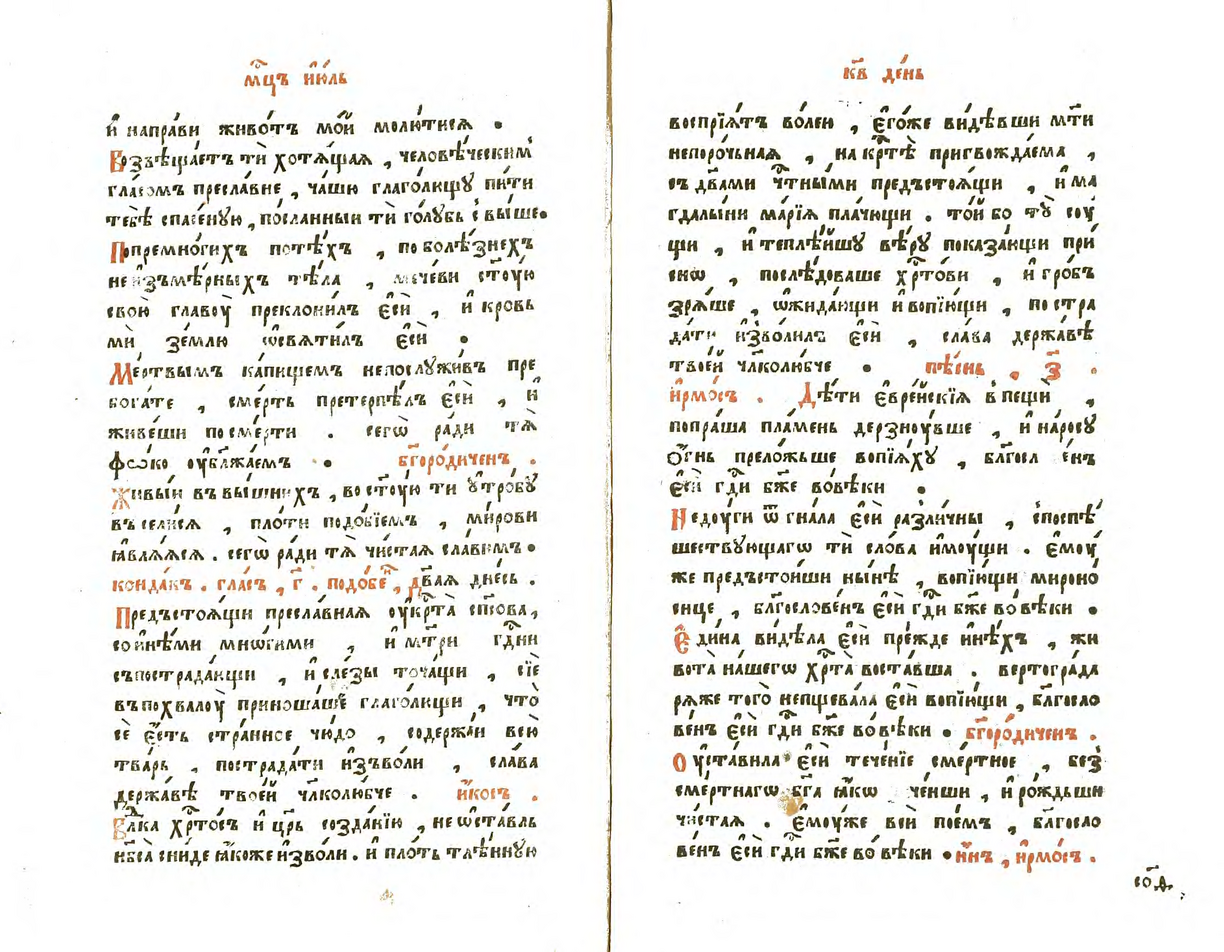 мⷭ҇цъ і҆ю́ль
и҆ напра́ви живо́тъ мо́й молю́тисѧ .
Возвѣща́етъ тѝ хотѧ́щаѧ , человѣ́ческим̾
гла́сомъ пресла́вне , ча́шю глаго́лющꙋ пи́ти
тебѣ̀ спасе́нꙋю , по́сланныи тѝ го́лꙋбь с̾выше .
Попремно́гихъ поте́хъ , поболѣ́знехъ
неизъмѣ́рныхъ тѣ́ла , мече́ви ст҃ꙋ́ю
свою̀ главоу̀ преклони́лъ є҆сѝ , и҆ кровь
мѝ зе́млю ѡ҆свѧти́лъ є҆сѝ .
Ме́ртвымъ ка́пищемъ непослꙋ́живъ пре
бога́те , сме́рть претерпѣ́лъ є҆сѝ , и҆
живе́ши посме́рти . сегѡ̀ ра́ди тѧ̀
фѡ́ко оу҆бл҃жа́емъ . бг҃оро́диченъ .
Живы́и въвы́шнихъ , во ст҃ꙋ́ю ти ᲂу҆тро́бꙋ
въсели́сѧ , пло́ти подо́бїемъ , ми́рови
ꙗ҆влѧ́ѧсѧ . сегѡ̀ ра́ди тѧ̀ чи́стаѧ сла́вимъ .
конда́къ . гла́съ , г҃ . подо́бе , два́ѧ дне́сь .
Предъстоѧ́щи пресла́внаѧ оу҆крⷭ҇та̀ сп҃сова ,
сои҆нѣ́ми мно́гими , и҆ мт҃ри гдⷭ҇ни
съпострада́ющи , и҆ сле́зы точа́щи , сїѐ
въпохвалоу̀ приноша́ше глаго́лющи , что̀
сѐ є҆́сть стра́нное чю́до , содержа́и всю̀
тва́рь , пострада́ти и҆зъво́ли , сла́ва
держа́вѣ твое́й чл҃колю́бче . и҆́косъ .
Влⷣка хрⷭ҇то́съ и҆ цр҃ь созда́нїю , не ѡ҆ста́вль
нб҃са сни́де ꙗ҆́коже и҆зво́ли . и҆ пло́ть тлѣ́ннꙋю
к҃в де́нь
воспрїѧ́тъ во́лею , є҆го́же ви́дѣвши мт҃и
непоро́чьнаѧ , на крⷭ҇тѣ̀ пригвожда́ема ,
съ двѣма чтⷭ҇ны́ми предъстоѧ́щи , и҆ ма
гдалы́ни марі́ѧ пла́чющи . то́й бо тꙋ̀ соу́
щи , и҆ теплѣ́йшꙋ вѣ́рꙋ показа́ющи при́
снѡ , послѣ́доваше хрⷭ҇то́ви , и҆ гро́бъ
зрѧ́ше , ѡ҆жида́ющи и҆ вопїю́щи , постра
да́ти и҆зво́лилъ є҆сѝ , сла́ва держа́вѣ
твое́й чл҃колю́бче . пѣ́снь . з҃ .
і҆рмо́съ . Дѣ́ти є҆вре́йскїѧ в̾пещи̂ ,
попра́ша пла́мень дерзноу́вше , и҆ на́росꙋ
ѻ҆́гнь прело́жьше вопїѧ́хꙋ , бл҃госл енъ
є҆сѝ гдⷭ҇и бж҃е во́вѣки .
Недоу́ги ѿгна́ла є҆сѝ разли́чны , с̾поспѣ́
шествꙋющагѡ тѝ сло́ва и҆моу́щи . є҆моу́
же предъстои́ши ны́нѣ , вопїю́щи мироно́
сице , бл҃гослове́нъ є҆сѝ гдⷭ҇и бж҃е во́ вѣки .
Е҆ди́на ви́дѣла є҆сѝ пре́жде и҆нѣ́хъ , жи
вота̀ на́шегѡ хрⷭ҇та̀ воста́вша . вертогра́да
рѧ́же того̀ непщева́ла є҆сѝ вопїю́щи , бл҃госло
ве́нъ є҆сѝ гдⷭ҇и бж҃е во́вѣки . бг҃оро́диченъ .
Оу҆ста́вила є҆сѝ тече́нїе сме́ртное , без̾
сме́ртнагѡ бг҃а ꙗ҆́кѡ ченши , и҆ ро́ждьши
чи́стаѧ . є҆моу́же всѝ пое́мъ , бл҃госло
ве́нъ є҆сѝ гдⷭ҇и бж҃е во́ вѣки . и҆́нъ , і҆рмо́съ .
со҃д.